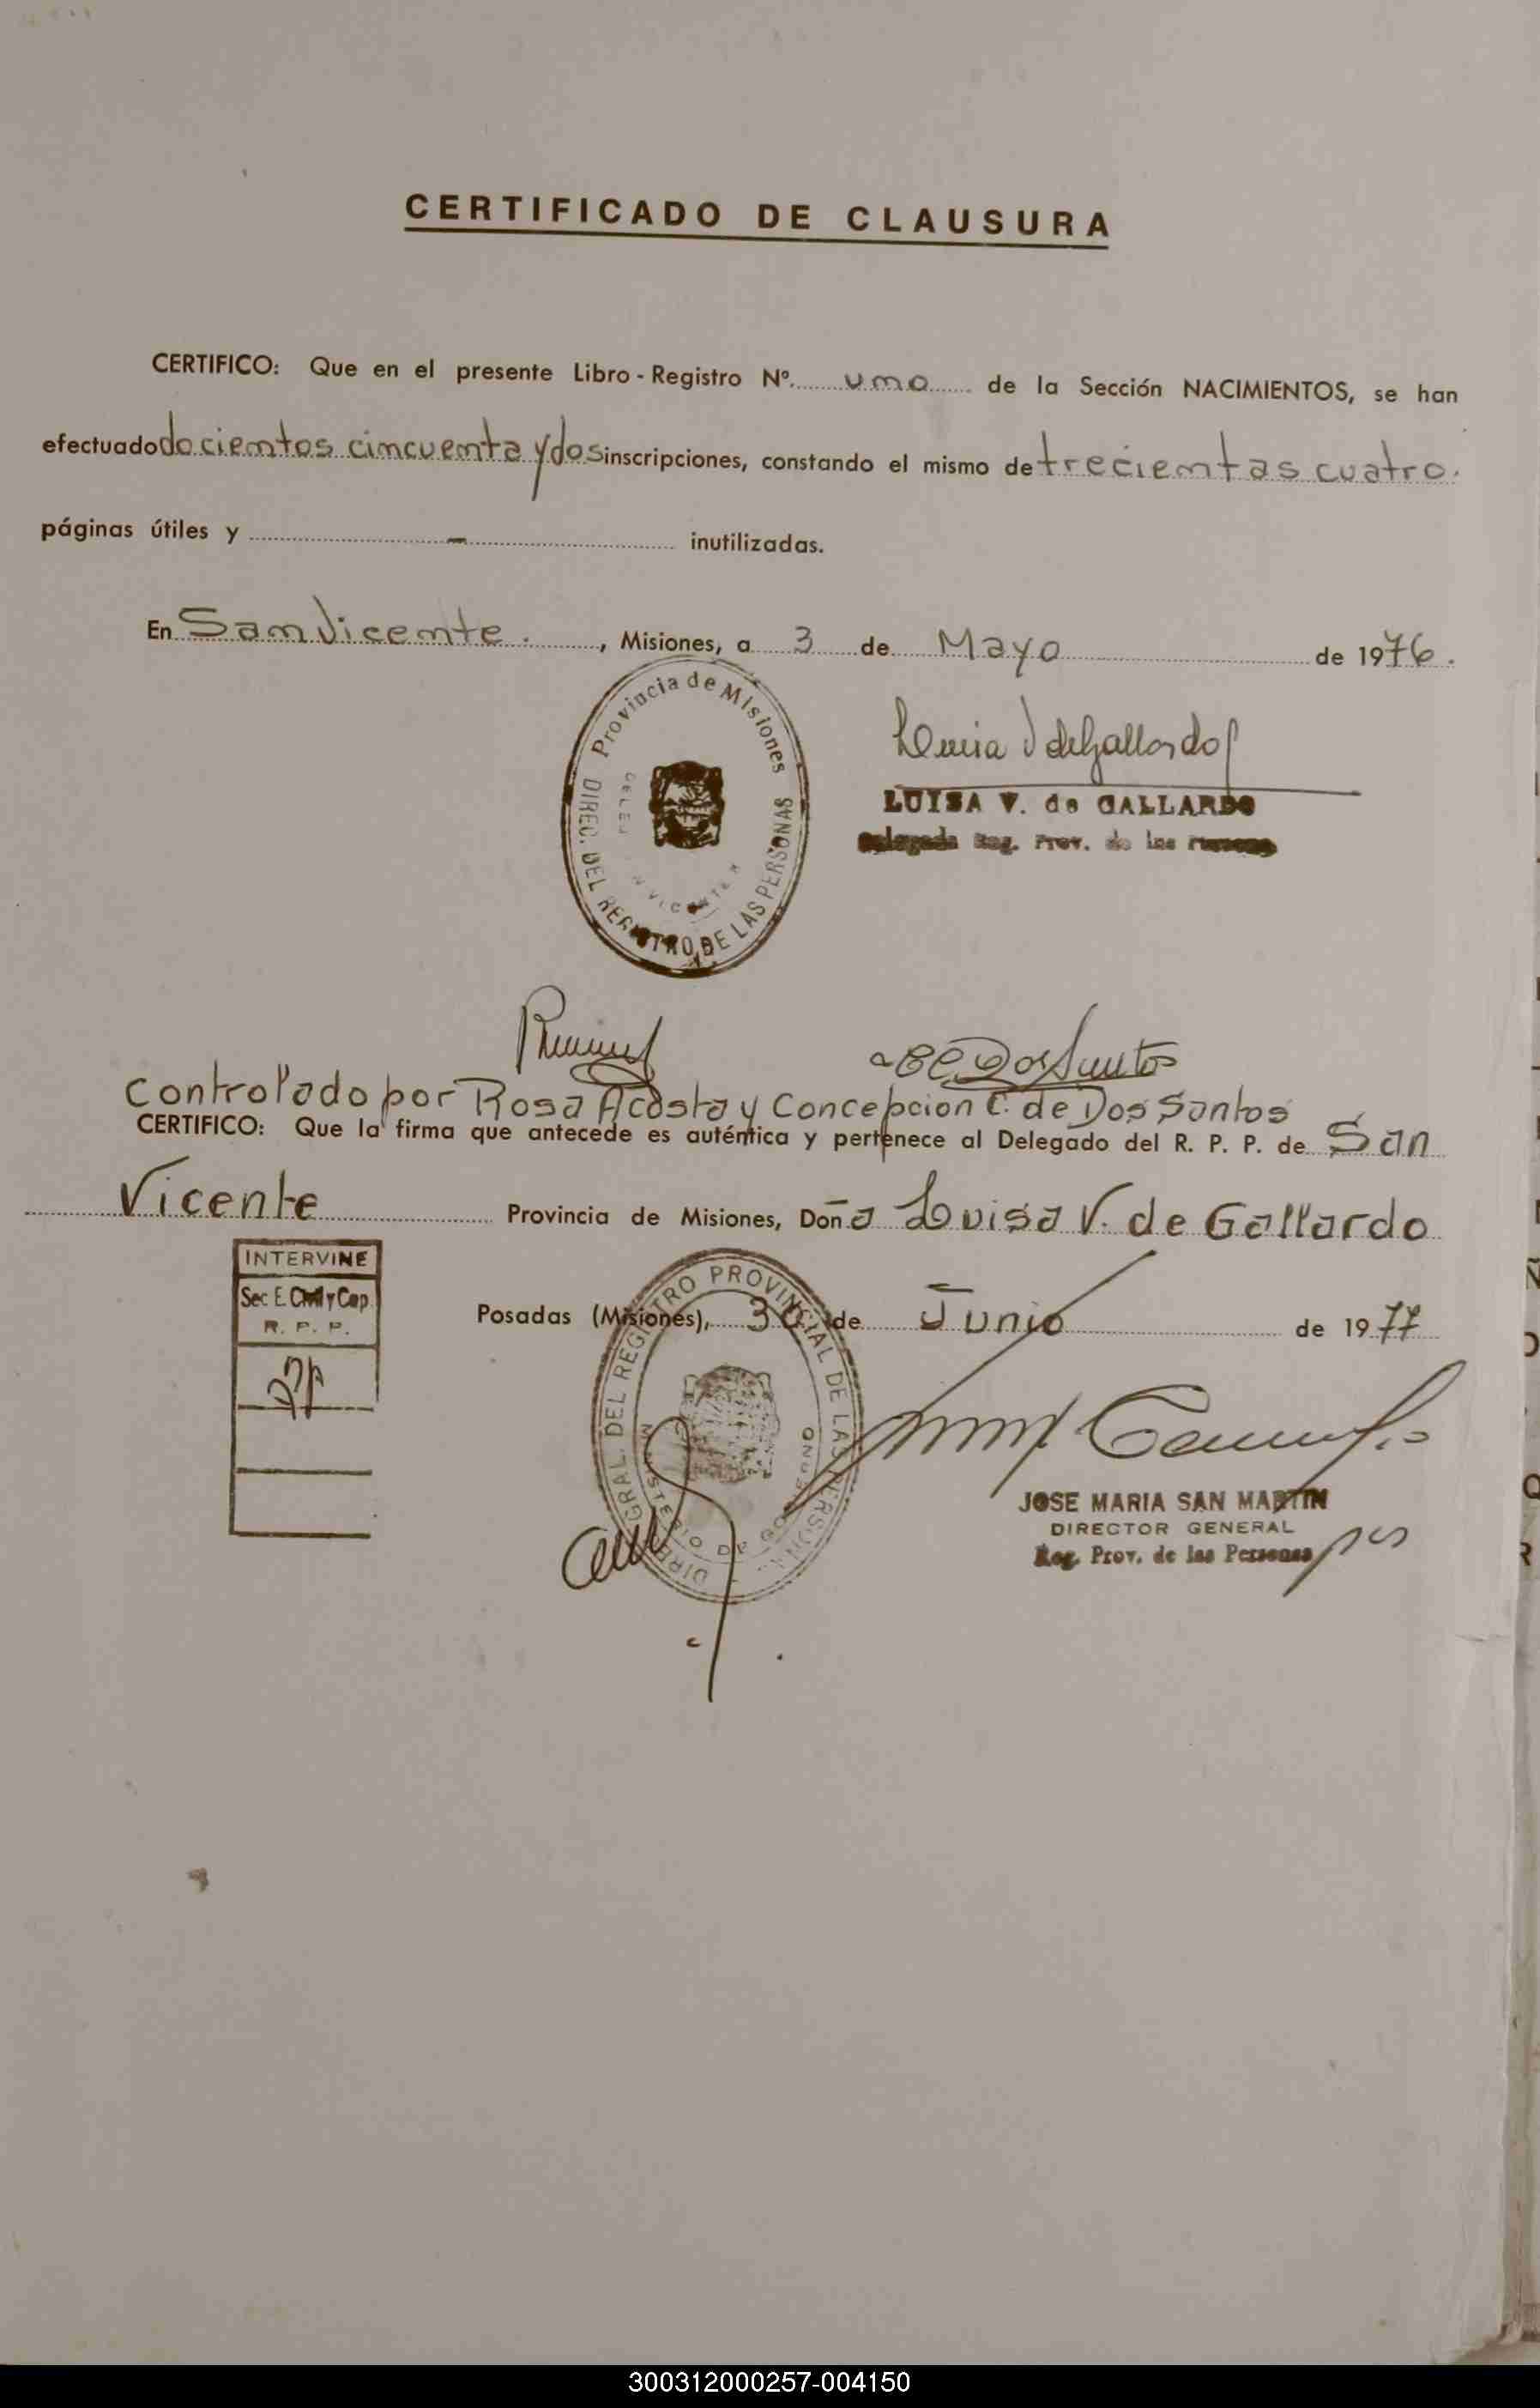 CERTIFICADO DE CLAUSURA
CERTIFICO: Que en el presente Libro - Registro Nº. umo de la Sección NACIMIENTOS, se han
efectuado docientos cincuenta y dos inscripciones, constando el mismo de trecientas cuatro.
páginas útiles y - inutilizadas.
En San Vicente. , Misiones, a 3 de Mayo de 1976.
Provincia de Misiones
DIREC. DEL REGISTRO DE LAS PERSONAS
LUISA V. de GALLARDO
Delegada Reg. Prov. de las Personas
Controlado por Rosa Acosta y Concepcion C. de Dos Santos
CERTIFICO: Que la firma que antecede es auténtica y pertenece al Delegado del R. P. P. de San
Vicente Provincia de Misiones, Doña Luisa V. de Gallardo
INTERVINE
Sec E. Civil y Cap.
R. P. P.
Posadas (Misiones), 30 de Junio de 1977
GRAL. DEL REGISTRO PROVINCIAL DE LAS PERSONAS
MINISTERIO DE GOBIERNO
JOSE MARIA SAN MARTIN
DIRECTOR GENERAL
Reg. Prov. de las Personas
300312000257-004150